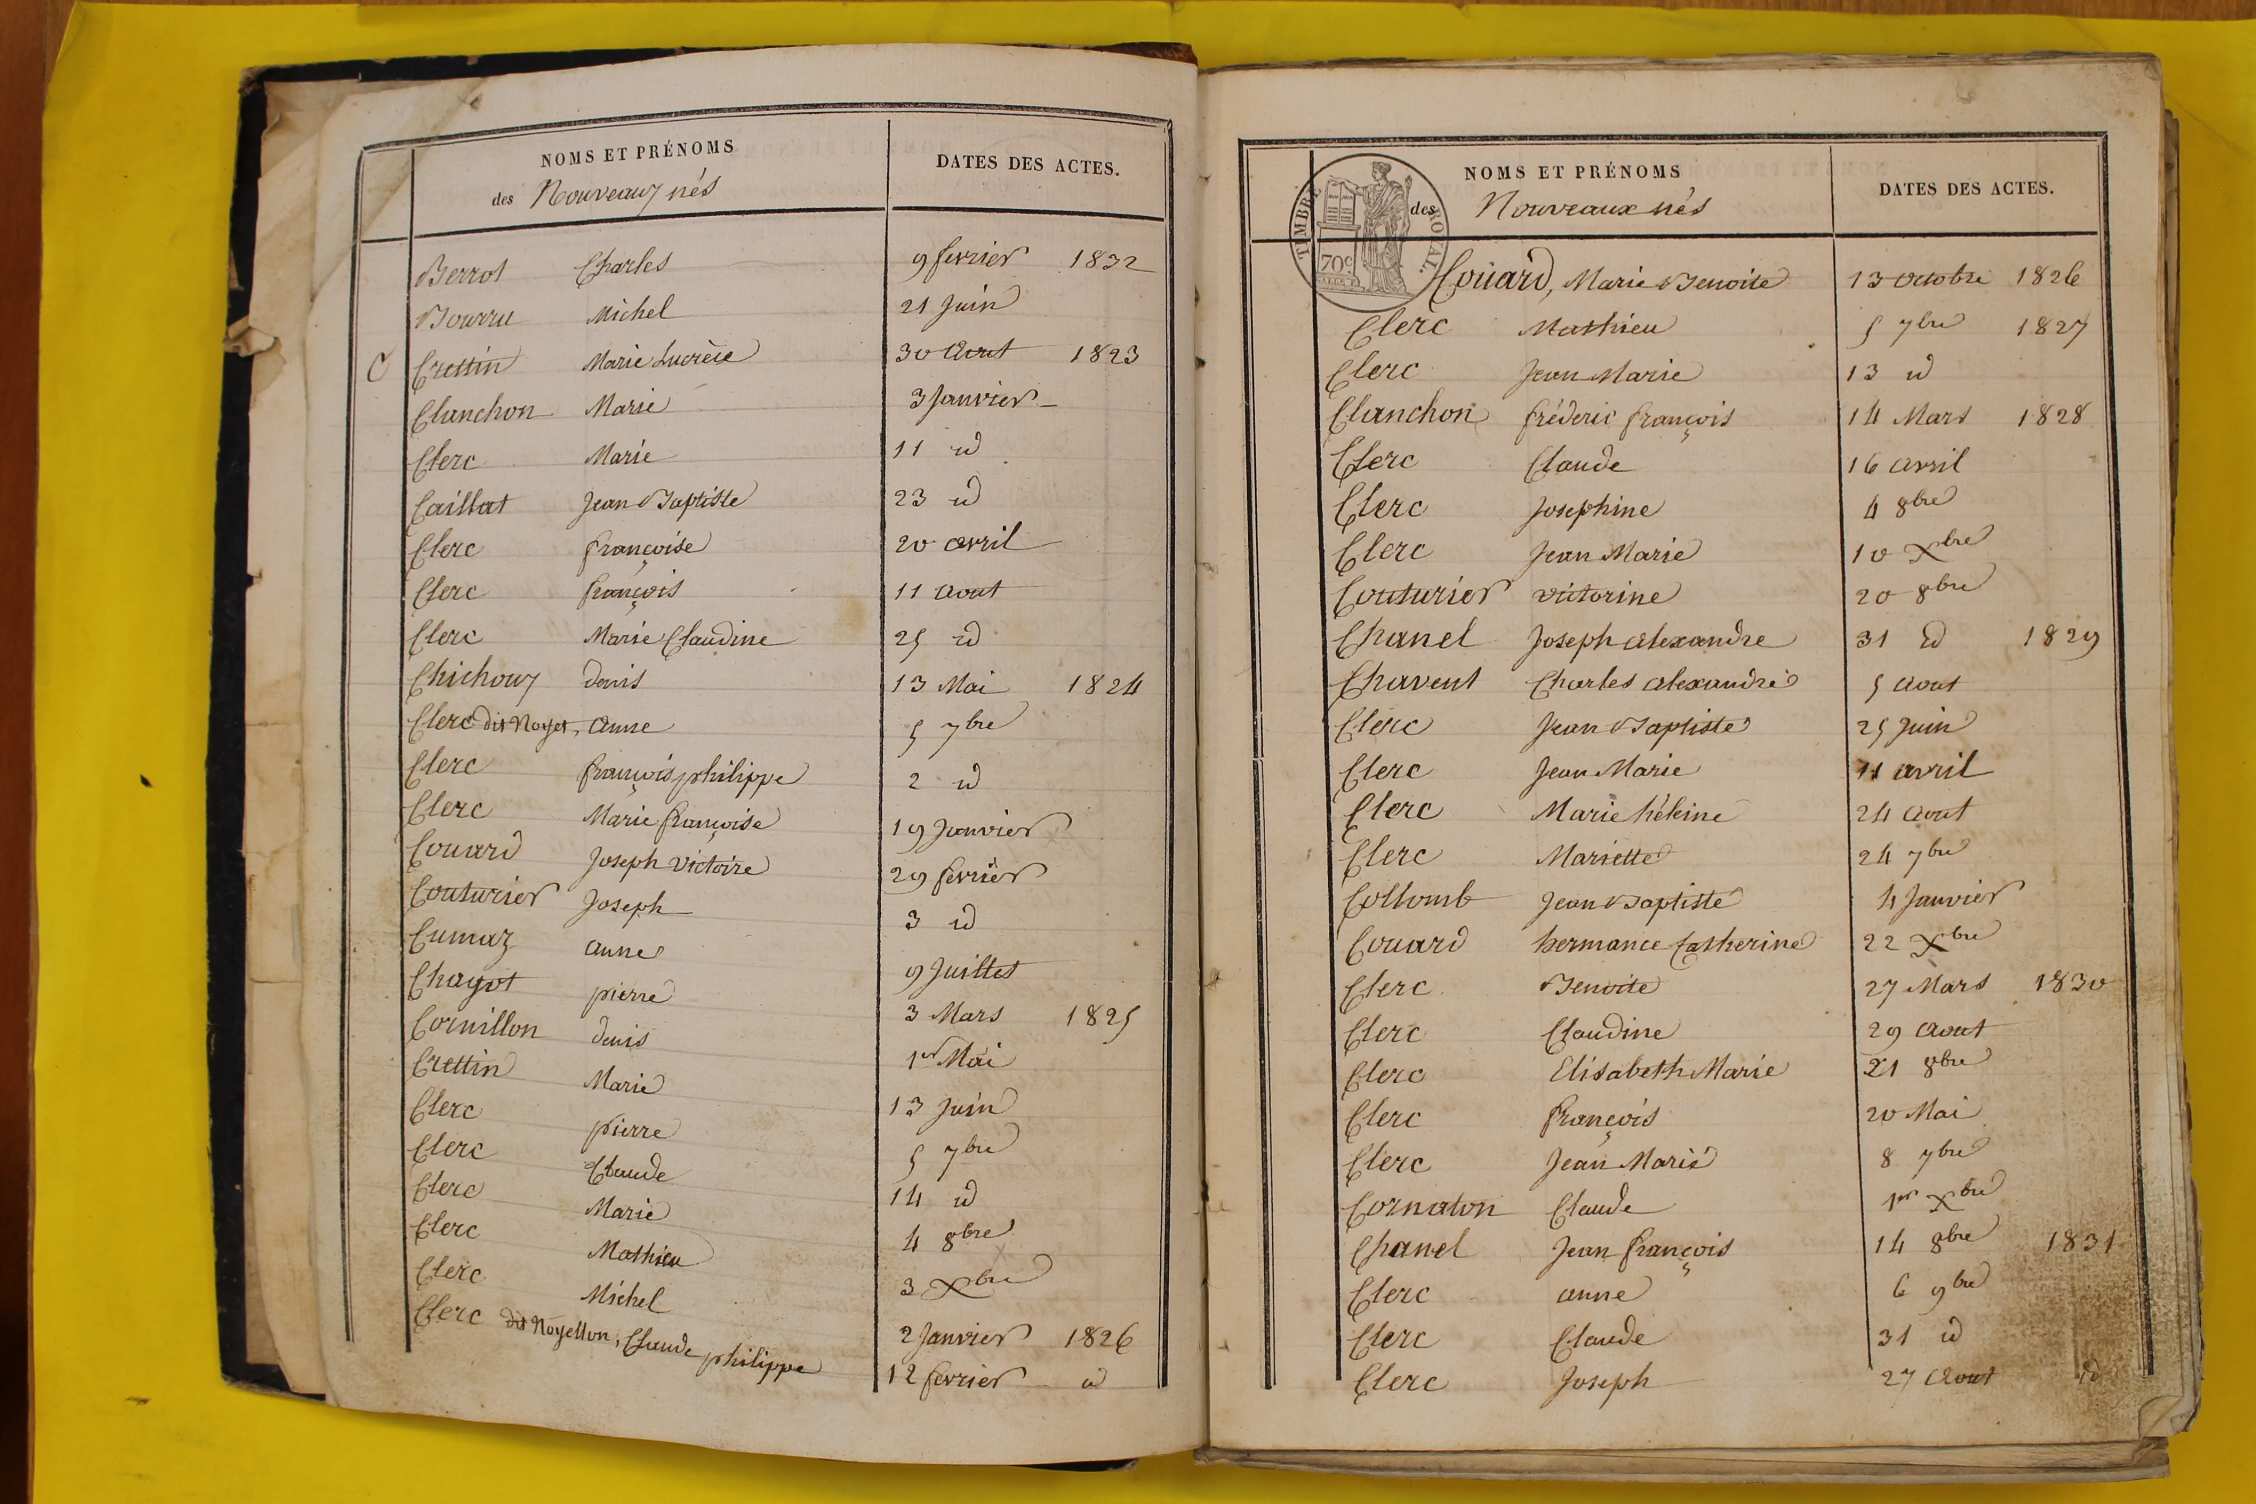 NOMS ET PRÉNOMS
des Nouveaux nés
DATES DES ACTES.
Berrot Charles 9 fevrier 1832
Bourru Michel 21 Juin
C Crettin Marie Lucrèce 30 Aout 1823
Clanchon Marie 3 Janvier
Clerc Marie 11 id
Caillat Jean Baptiste 23 id
Clerc françoise 20 avril
Clerc françois 11 aout
Clerc Marie Claudine 25 id
Chichoux denis 13 Mai 1824
Clerc dit Noyet, anne 5 7bre
Clerc françois philippe 2 id
Clerc Marie françoise 19 Janvier
Couard Joseph victoire 29 fevrier
Couturier Joseph 3 id
Cumaz anne 9 Juillet
Chagot pierre 3 Mars 1825
Cornillon denis 1er Mai
Crettin Marie 13 Juin
Clerc pierre 5 7bre
Clerc Claude 14 id
Clerc Marie 4 8bre
Clerc Mathieu 3 Xbre
Clerc Michel 2 Janvier 1826
Clerc dit Noyellon, Claude philippe 12 fevrier id
NOMS ET PRÉNOMS
des Nouveaux nés
DATES DES ACTES.
TIMBRE ROYAL.
70c
Couard, Marie Benoite 13 Octobre 1826
Clerc Mathieu 5 7bre 1827
Clerc Jean Marie 13 id
Clanchon fréderic françois 14 Mars 1828
Clerc Claude 16 avril
Clerc Josephine 4 8bre
Clerc Jean Marie 10 Xbre
Couturier victorine 20 8bre
Chanel Joseph alexandre 31 id 1829
Chavent Charles alexandre 5 aout
Clerc Jean Baptiste 25 Juin
Clerc Jean Marie 11 avril
Clerc Marie héleine 24 aout
Clerc Mariette 24 7bre
Collomb Jean Baptiste 4 Janvier
Couard hermance Catherine 22 Xbre
Clerc Benoite 27 Mars 1830
Clerc Claudine 29 Aout
Clerc Elisabeth Marie 21 8bre
Clerc françois 20 Mai
Clerc Jean Marie 8 7bre
Cornaton Claude 1er Xbre
Chanel Jean françois 14 8bre 1831
Clerc anne 6 9bre
Clerc Claude 31 id
Clerc Joseph 27 Aout id